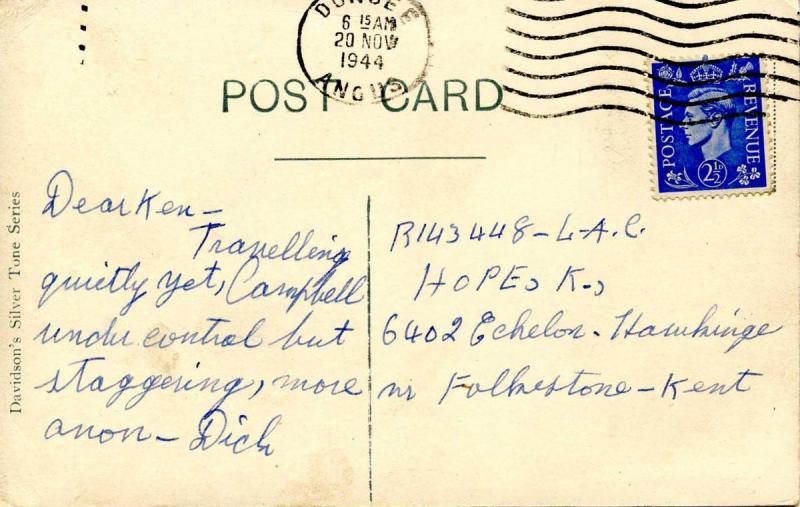 DUNDEE
6 15 AM
20 NOV
1944
ANGUS
POST CARD
POSTAGE
REVENUE
2½D
Davidson's Silver Tone Series
Dear Ken –
Travelling
quietly yet, Campbell
under control but
staggering, more
anon – Dick
R143448 – L.A.C.
HOPE, K.,
6402 Echelon - Hawkinge
nr Folkestone – Kent